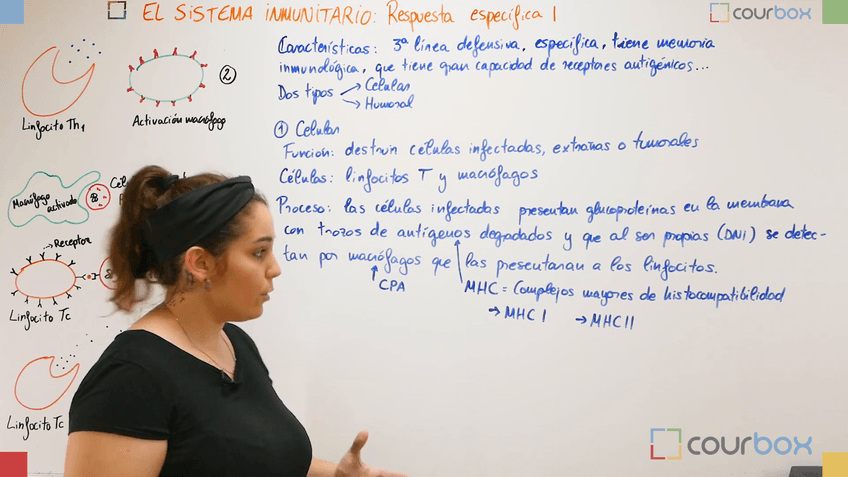 EL SISTEMA INMUNITARIO: Respuesta específica 1
courbox
Características: 3ª línea defensiva, específica, tiene memoria
inmunológica, que tiene gran capacidad de receptores antigénicos...
Dos tipos → Celular
→ Humoral
① Celular
Función: destruir células infectadas, extrañas o tumorales
Células: linfocitos T y macrófagos
Proceso: las células infectadas presentan glucoproteínas en la membrana
con trozos de antígenos degradados y que al ser propias (DNI) se detec-
tan por macrófagos que las presentaran a los linfocitos.
CPA
MHC = Complejos mayores de histocompatibilidad
→ MHC I → MHC II
Linfocito Th1
②
Activación macrófago
Macrófago
activado
B
→ Receptor
Linfocito Tc
Linfocito Tc
courbox